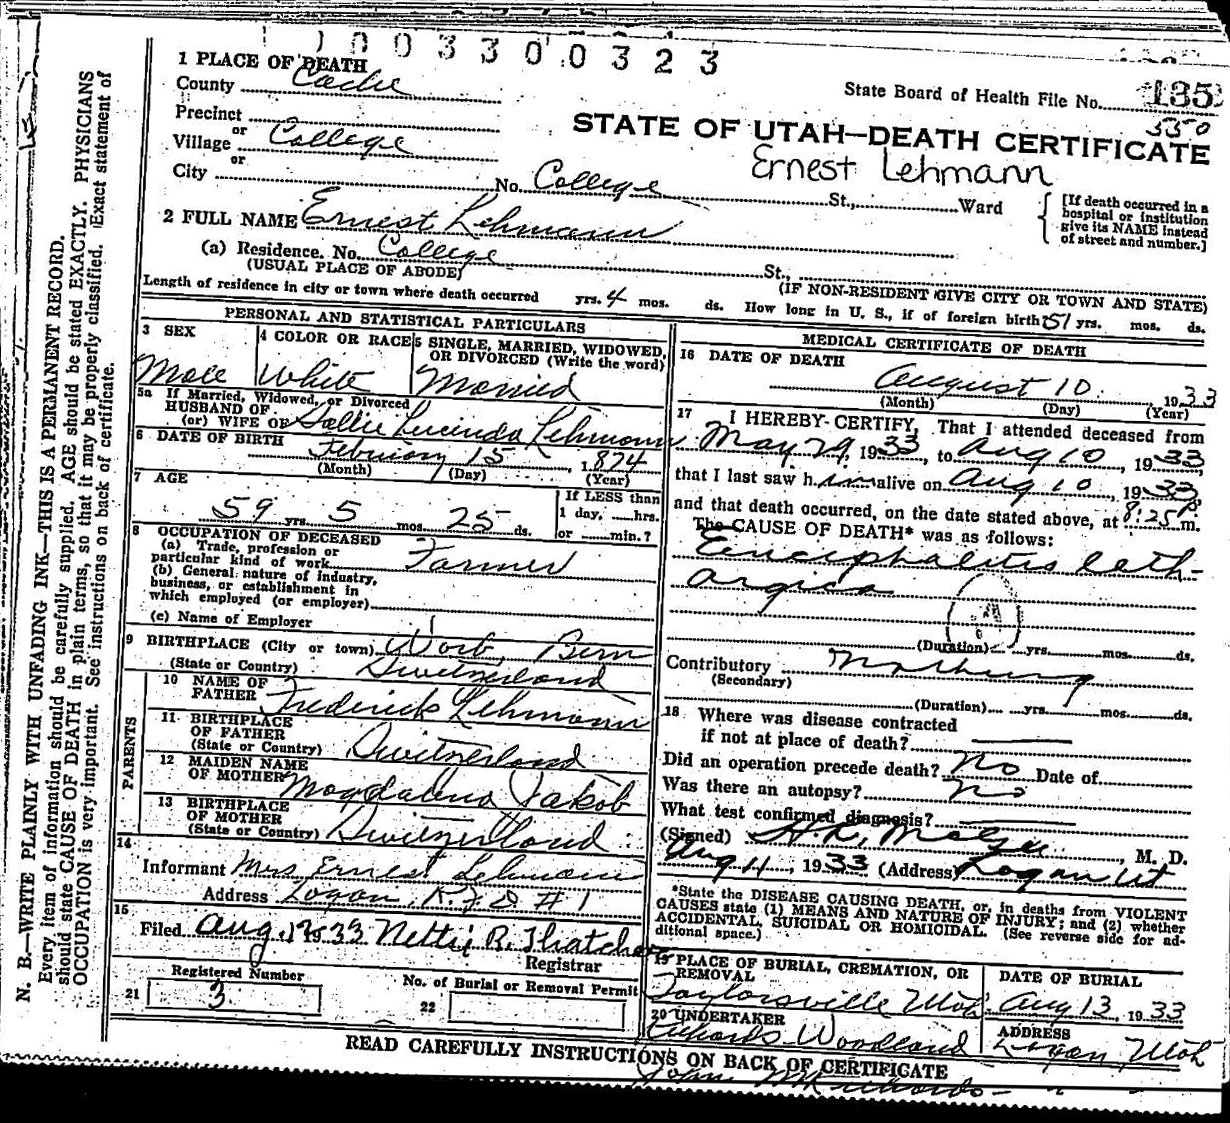 1003300323
1 PLACE OF DEATH
County Cache
State Board of Health File No. 135
550
Precinct
or
Village College
or
City
STATE OF UTAH—DEATH CERTIFICATE
Ernest Lehmann
No. College St., Ward
[If death occurred in a
hospital or institution
give its NAME instead
of street and number.]
2 FULL NAME Ernest Lehmann
(a) Residence. No. College St.,
(USUAL PLACE OF ABODE)
(IF NON-RESIDENT GIVE CITY OR TOWN AND STATE)
Length of residence in city or town where death occurred yrs. 4 mos. ds. How long in U. S., if of foreign birth? 51 yrs. mos. ds.
PERSONAL AND STATISTICAL PARTICULARS
3 SEX
Male
4 COLOR OR RACE
White
5 SINGLE, MARRIED, WIDOWED,
OR DIVORCED (Write the word)
Married
5a If Married, Widowed, or Divorced
HUSBAND OF
(or) WIFE OF Sallie Lucinda Lehmann
6 DATE OF BIRTH
February 15 1874
(Month) (Day) (Year)
7 AGE
59 yrs. 5 mos. 25 ds.
If LESS than
1 day, hrs.
or min.?
8 OCCUPATION OF DECEASED
(a) Trade, profession or
particular kind of work Farmer
(b) General nature of industry,
business, or establishment in
which employed (or employer)
(c) Name of Employer
9 BIRTHPLACE (City or town) Worb, Bern
(State or Country) Switzerland
PARENTS
10 NAME OF
FATHER Frederick Lehmann
11 BIRTHPLACE
OF FATHER
(State or Country) Switzerland
12 MAIDEN NAME
OF MOTHER Magdalena Jakob
13 BIRTHPLACE
OF MOTHER
(State or Country) Switzerland
14
Informant Mrs Ernest Lehmann
Address Logan, R.F.D. #1
15
Filed Aug. 12 1933 Nettie R. Thatcher
Registrar
Registered Number
21 3
No. of Burial or Removal Permit
22
MEDICAL CERTIFICATE OF DEATH
16 DATE OF DEATH
August 10 1933
(Month) (Day) (Year)
17 I HEREBY CERTIFY, That I attended deceased from
May 29, 1933, to Aug 10, 1933
that I last saw him alive on Aug 10, 1933
and that death occurred, on the date stated above, at 8:25 P. m.
The CAUSE OF DEATH* was as follows:
Encephalitis leth-
argica
(Duration) yrs. mos. ds.
Contributory nothing
(Secondary)
(Duration) yrs. mos. ds.
18 Where was disease contracted
if not at place of death?
Did an operation precede death? No Date of
Was there an autopsy? no
What test confirmed diagnosis?
(Signed) H. R. , M. D.
Aug 11, 1933 (Address) Logan Ut
*State the DISEASE CAUSING DEATH, or, in deaths from VIOLENT
CAUSES state (1) MEANS AND NATURE OF INJURY; and (2) whether
ACCIDENTAL, SUICIDAL OR HOMICIDAL. (See reverse side for ad-
ditional space.)
19 PLACE OF BURIAL, CREMATION, OR
REMOVAL
Taylorsville Utah
DATE OF BURIAL
Aug 13, 1933
20 UNDERTAKER
Richards Woodland
ADDRESS
Logan, Utah
READ CAREFULLY INSTRUCTIONS ON BACK OF CERTIFICATE
John Richards
N. B.—WRITE PLAINLY WITH UNFADING INK—THIS IS A PERMANENT RECORD.
Every item of information should be carefully supplied. AGE should be stated EXACTLY. PHYSICIANS
should state CAUSE OF DEATH in plain terms, so that it may be properly classified. Exact statement of
OCCUPATION is very important. See instructions on back of certificate.